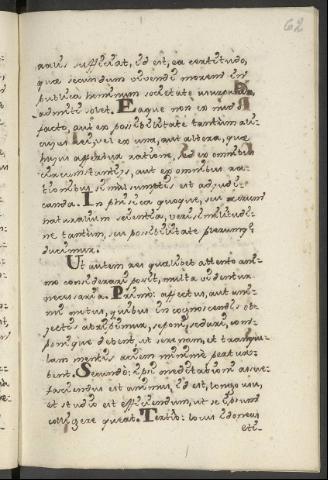 62
ralis sufficiat, id est, ea certitudo,
quæ secundum vivendi morem in
publica hominum societate usurpari,
admitti solet. Eaque non ex nudo
facto, aut ex possibilitate tantum ali-
cujus rei, vel ex una, aut altera, quæ
hujus ratione, sed ex omnibus
circumstantiis, aut ex omnibus ra-
tionibus simul sumptis est adjudi-
canda. In physica quoque, seu rerum
naturalium scientia, verisimilitudi-
ne tantum, seu possibilitate plerumque
ducimur.
Ut autem rei qualibet attento ani-
mo considerari possit, multa videntur
necessaria. Primo: affectus, aut ani-
mi motus, quibus in cognoscendis ob-
jectis abripimur, sedari, com-
ponique debent, ut serenam, et tranquil-
lam mentis aciem minime pertur-
bent. Secundo: ipsi meditationi assue-
faciendus est animus, id est, longo usu,
et studio est efficiendum, ut se ipsum
colligere queat. Tertio: loci idoneus
etc